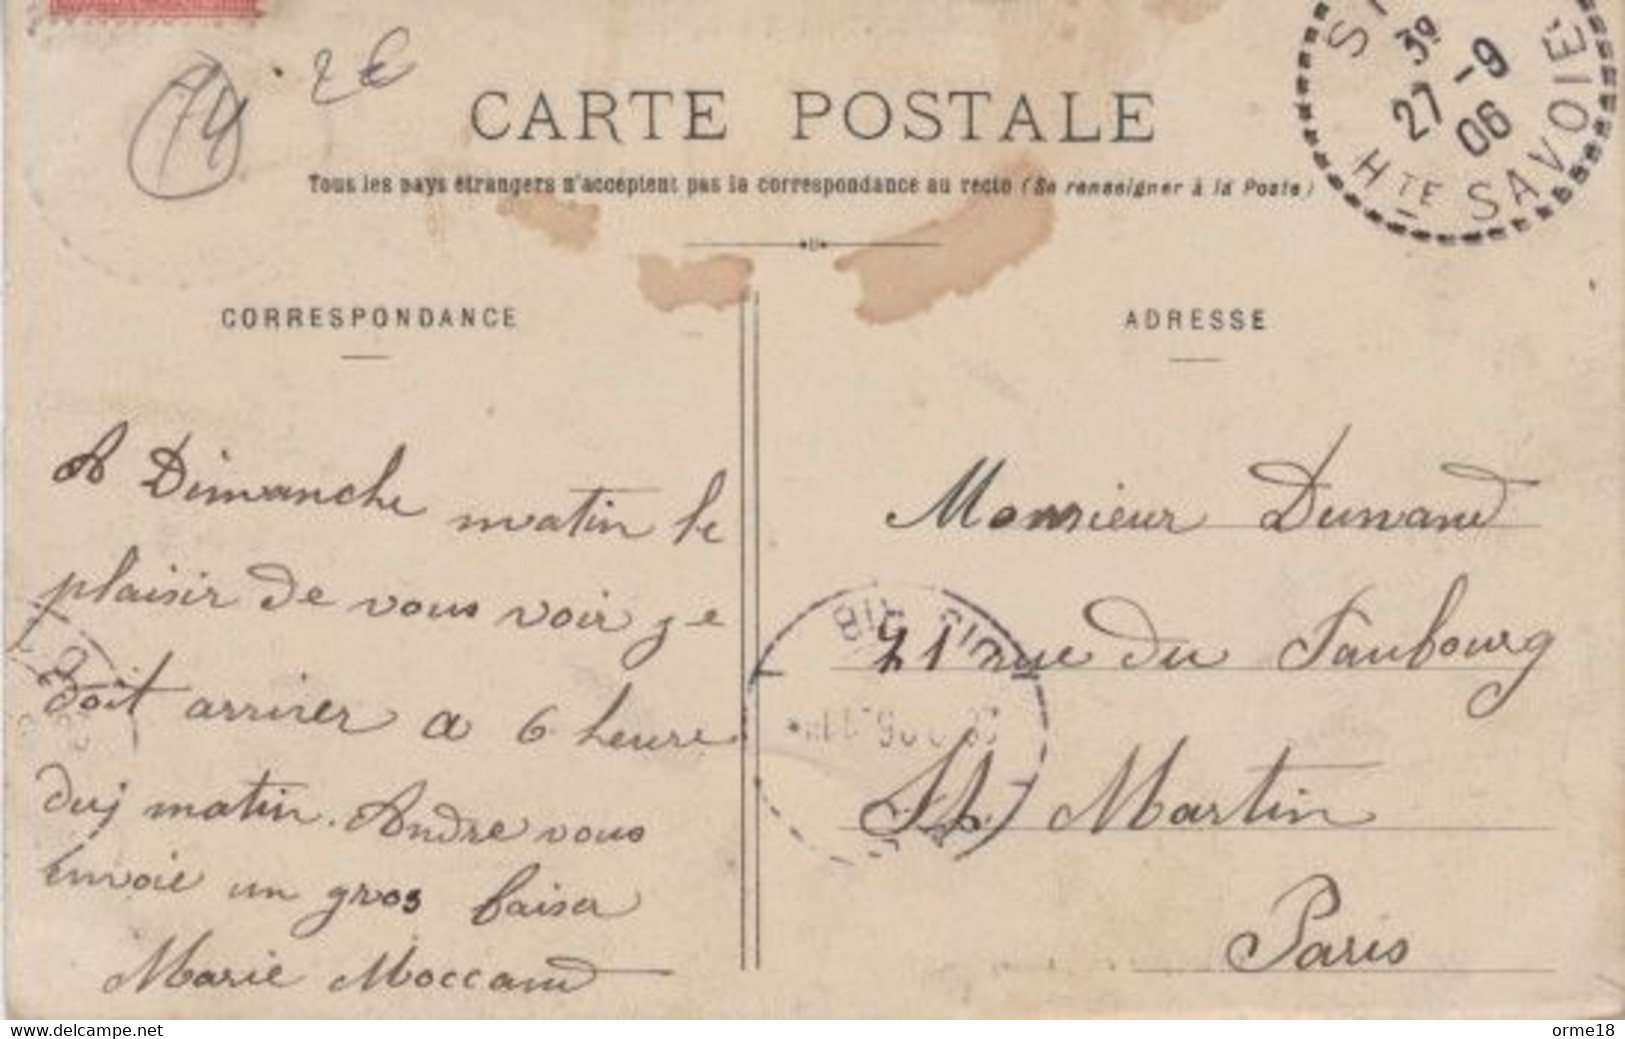 74 2€
CARTE POSTALE
Tous les pays étrangers n'acceptent pas la correspondance au recto (Se renseigner à la Poste)
3e
27 -9
06
HTE SAVOIE
CORRESPONDANCE
A Dimanche matin le
plaisir de vous voir je
doit arriver a 6 heure
duj matin. Andre vous
envoie un gros baiser
Marie Moccand
ADRESSE
Monsieur Dunand
21 rue du Faubourg
St Martin
Paris
www.delcampe.net
orme18